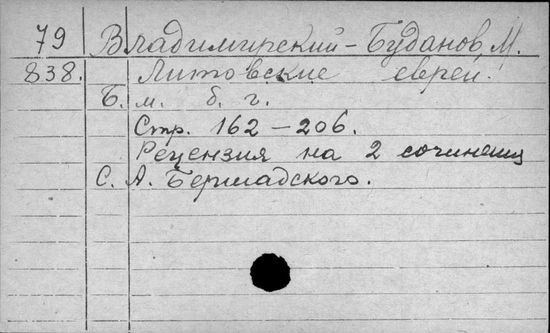 79 Владимирский-Буданов, М.
838. Литовские евреи.
Б. м. б. г.
Стр. 162-206.
Рецензия на 2 сочинения
С. А. Бершадского.